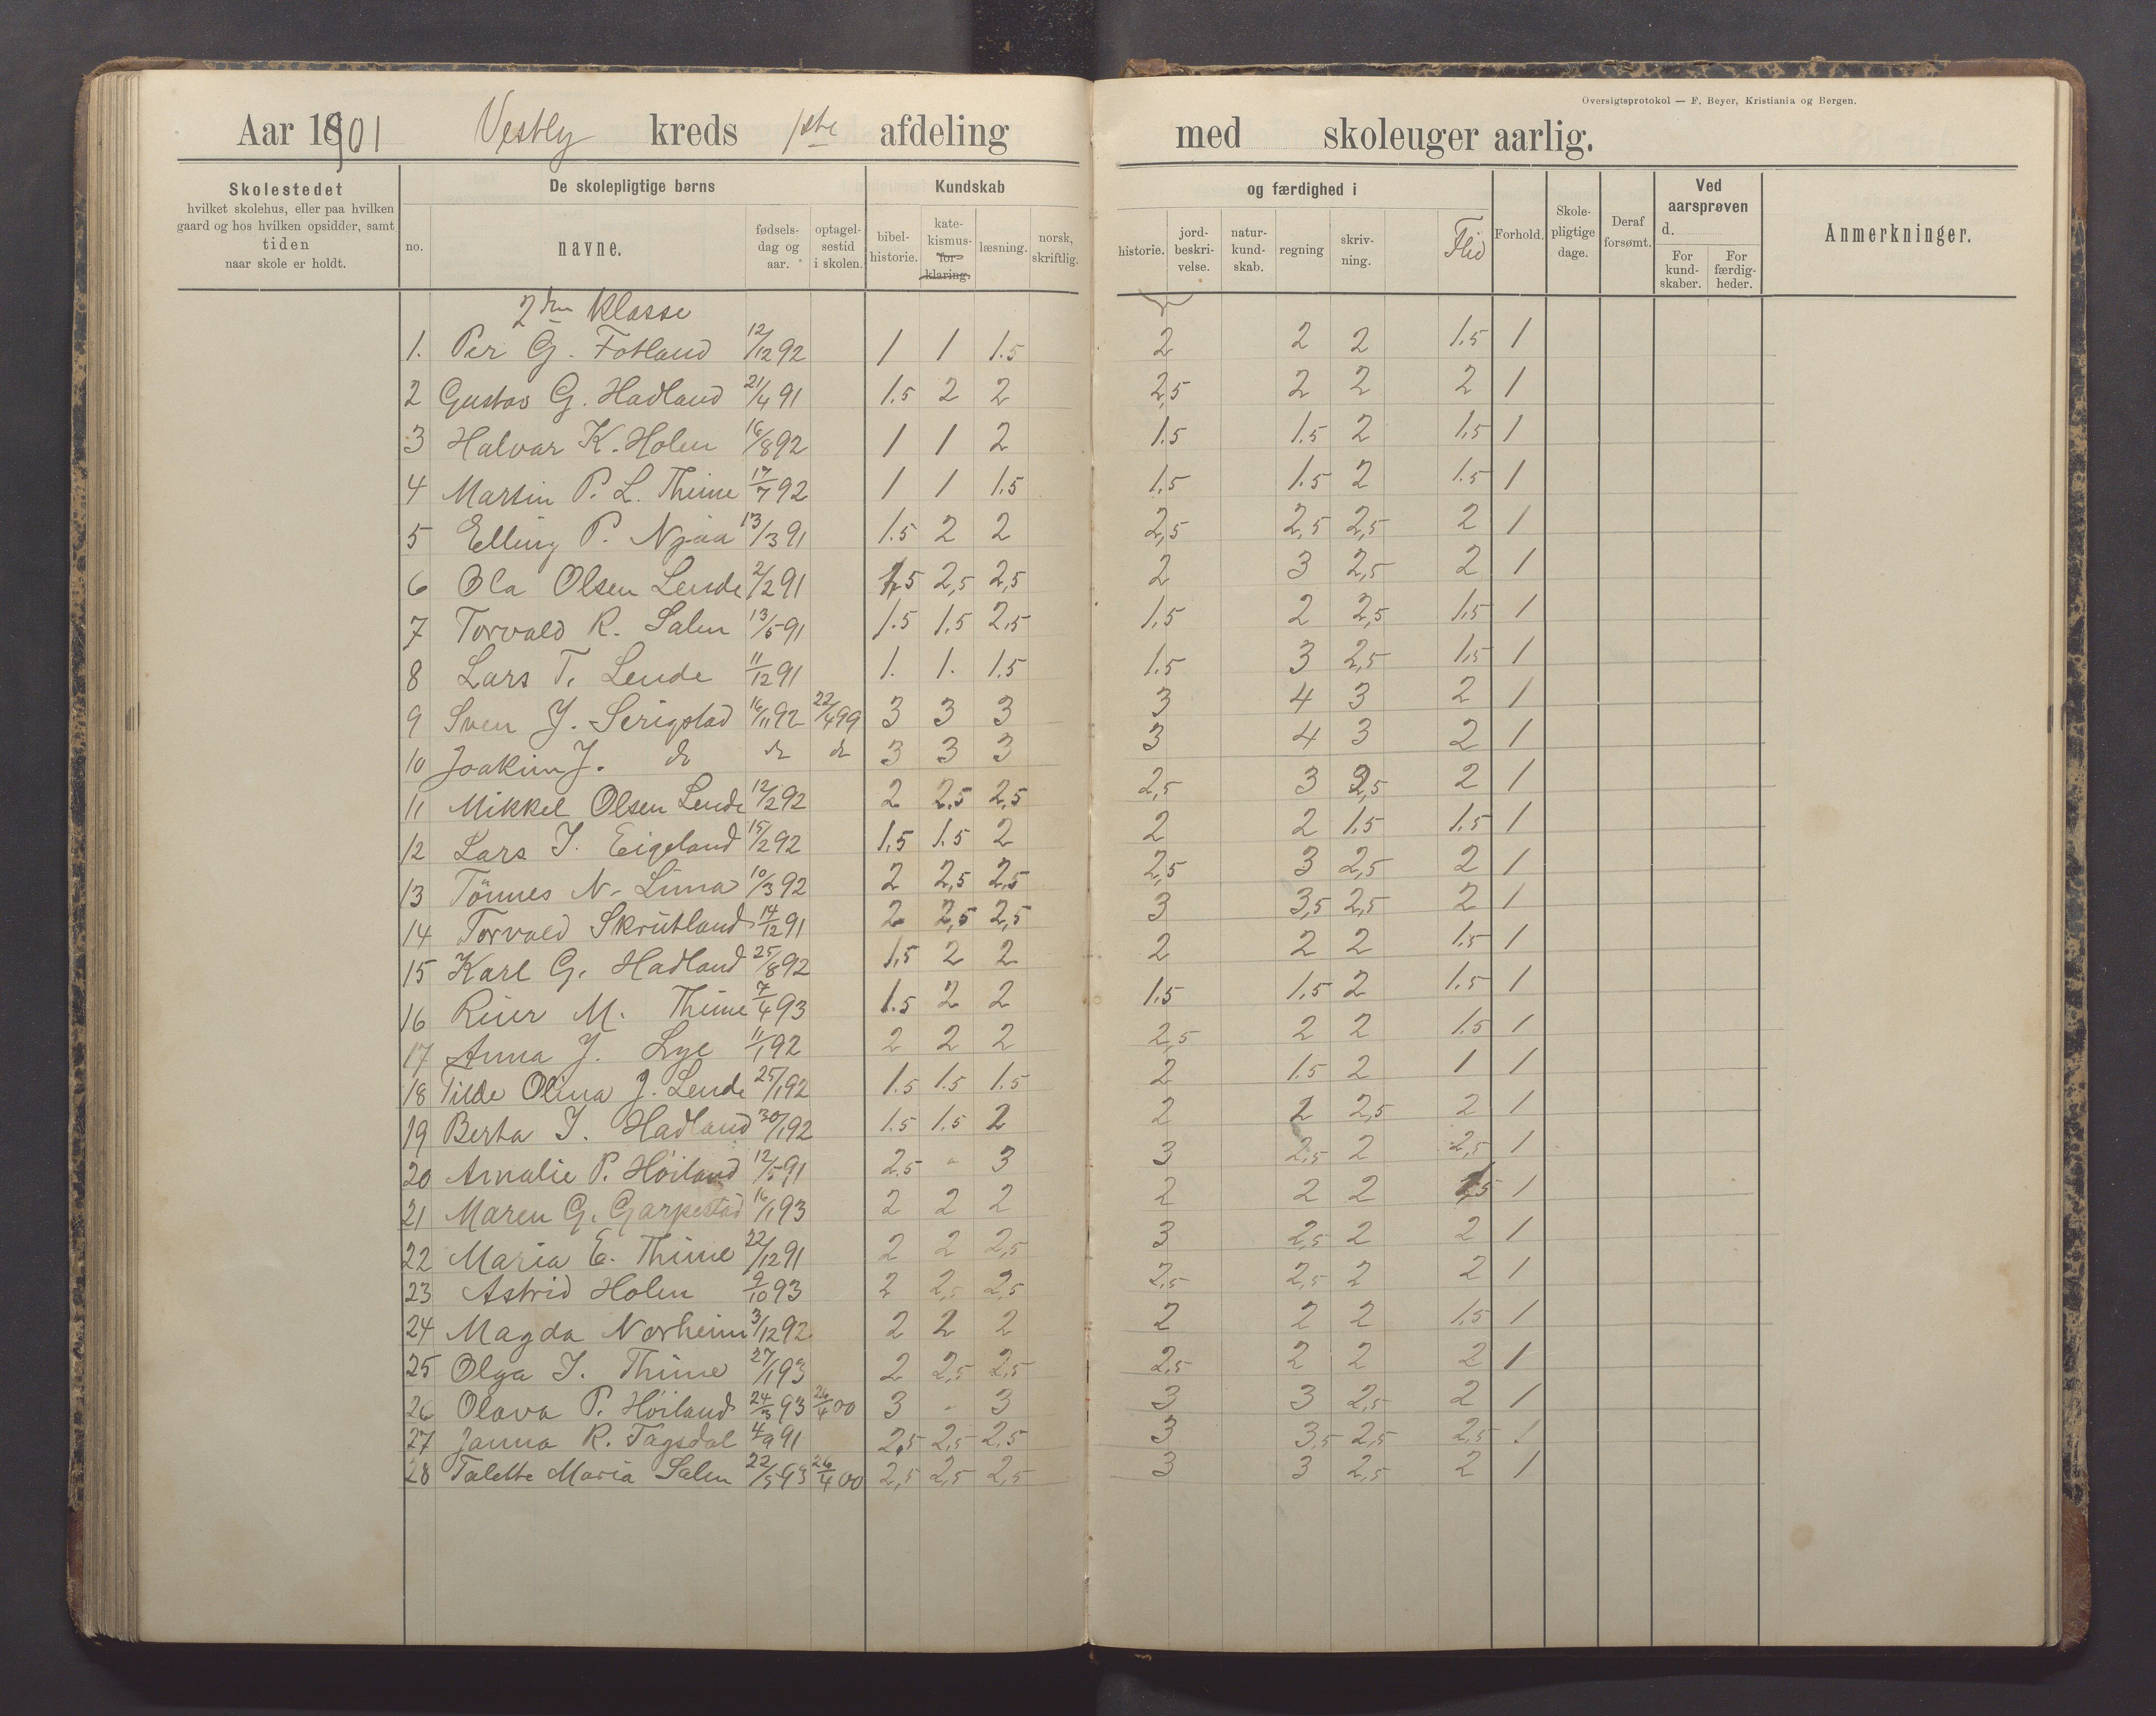 Oversigtsprotokol — F. Beyer, Kristiania og Bergen.
Aar 1901 Vestly kreds 1ste afdeling med skoleuger aarlig.
Skolestedet
hvilket skolehus, eller paa hvilken
gaard og hos hvilken opsidder, samt
tiden
naar skole er holdt.
De skolepligtige børns
no. navne. fødsels-dag og aar. optagel-sestid i skolen.
Kundskab og færdighed i
bibel-historie. kate-kismus-for-klaring. læsning. norsk, skriftlig. historie. jord-beskri-velse. natur-kund-skab. regning skriv-ning. Flid Forhold. Skole-pligtige dage. Deraf forsømt.
Ved aarsprøven d.
For kund-skaber. For færdig-heder.
Anmerkninger.
2den klasse
1. Per G. Fotland 12/12 92 1 1 1.5 2 2 2 1.5 1
2 Gustav G. Hadland 21/4 91 1.5 2 2 2,5 2 2 2 1
3 Halvar K. Holen 16/8 92 1 1 2 1.5 1.5 2 1,5 1
4 Martin P. L. Thime 17/7 92 1 1 1.5 1,5 1.5 2 1.5 1
5 Elling P. Njaa 13/3 91 1.5 2 2 2,5 2,5 2,5 2 1
6 Ola Olsen Lende 2/2 91 1,5 2,5 2,5 2 3 2,5 2 1
7 Torvald R. Salen 13/5 91 1.5 1.5 2,5 1,5 2 2,5 1,5 1
8 Lars T. Lende 11/12 91 1. 1. 1.5 1.5 3 2,5 1,5 1
9 Sven J. Serigstad 16/11 92 22/4 99 3 3 3 3 4 3 2 1
10 Joakim J. do do do 3 3 3 3 4 3 2 1
11 Mikkel Olsen Lende 12/2 92 2 2.5 2,5 2,5 3 2,5 2 1
12 Lars J. Eigeland 15/2 92 1,5 1.5 2 2 2 1.5 1.5 1
13 Tönnes N. Lima 10/3 92 2 2,5 2,5 2,5 3 2,5 2 1
14 Torvald Skrutland 14/12 91 2 2,5 2,5 3 3,5 2,5 2 1
15 Karl G. Hadland 25/8 92 1,5 2 2 2 2 2 1.5 1
16 Reier M. Thime 7/4 93 1.5 2 2 1.5 1.5 2 1.5 1
17 Anna J. Lye 11/1 92 2 2 2 2,5 2 2 1.5 1
18 Tilde Olina J. Lende 25/1 92 1.5 1.5 1.5 2 1.5 2 1 1
19 Berta J. Hadland 30/1 92 1.5 1.5 2 2 2 2,5 2 1
20 Amalie P. Höiland 12/5 91 2.5 - 3 3 2,5 2 2,5 1
21 Maren G. Garpestad 16/1 93 2 2 2 2 2 2 1,5 1
22 Maria E. Thime 22/12 91 2 2 2,5 3 2,5 2 2 1
23 Astrid Holen 9/10 93 2 2,5 2,5 2,5 2,5 2 2 1
24 Magda Norheim 3/12 92 2 2 2 2 2 2 1.5 1
25 Olga J. Thime 27/1 93 2 2,5 2,5 2,5 2 2 2 1
26 Olava P. Höiland 24/3 93 26/4 00 3 - 3 3 3 2,5 2 1
27 Janna R. Tagsdal 4/9 91 2,5 2,5 2,5 3 3,5 2,5 2,5 1
28 Talette Maria Salen 22/5 93 26/4 00 2,5 2,5 2,5 3 3 2,5 2 1